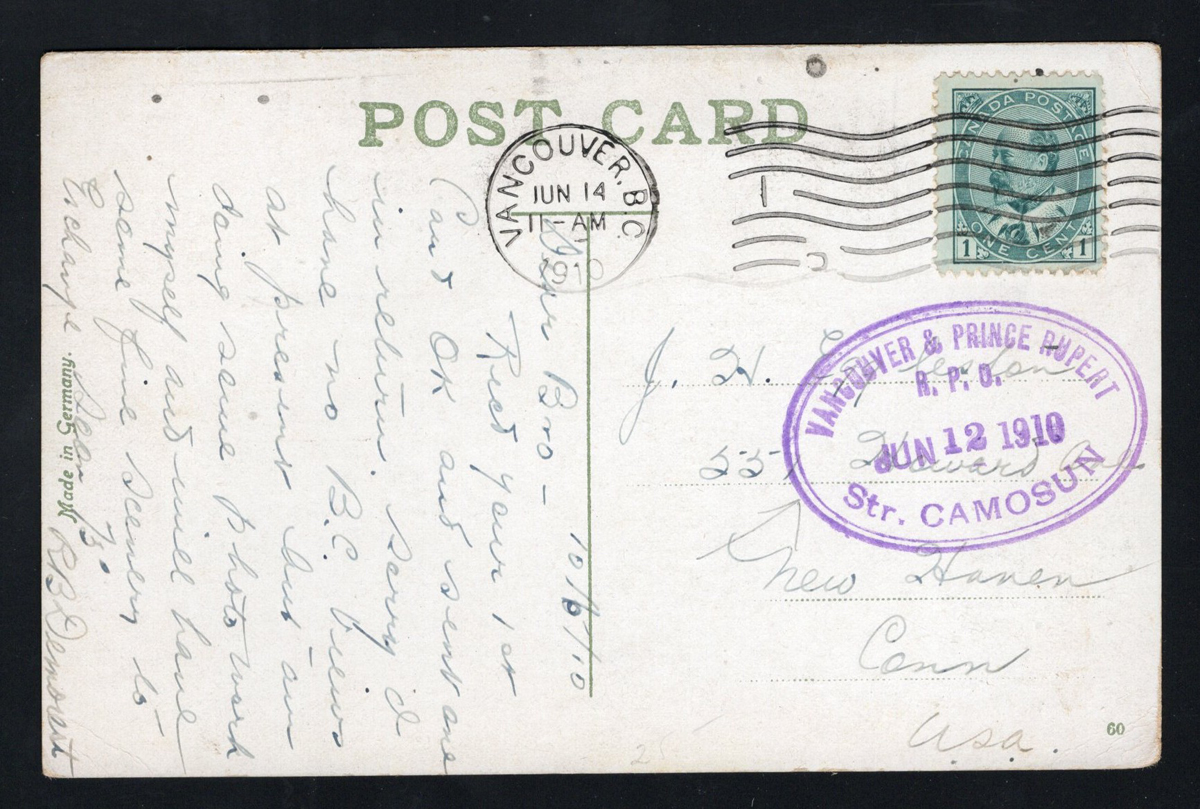 POST CARD
VANCOUVER, B.C.
JUN 14
11-AM
1910
CANADA POSTAGE
1 ONE CENT 1
VANCOUVER & PRINCE RUPERT
R.P.O.
JUN 12 1910
Str. CAMOSUN
10/6/10
Dear Bro-
Recd your 1st
Card OK and sent one
in return. Sorry I
have no B.C. views
at present but am
doing some photo work
myself and will have
some fine scenery to
Exchange
R B
Made in Germany.
J. H.
551 Howard Ave
New Haven
Conn
USA.
60